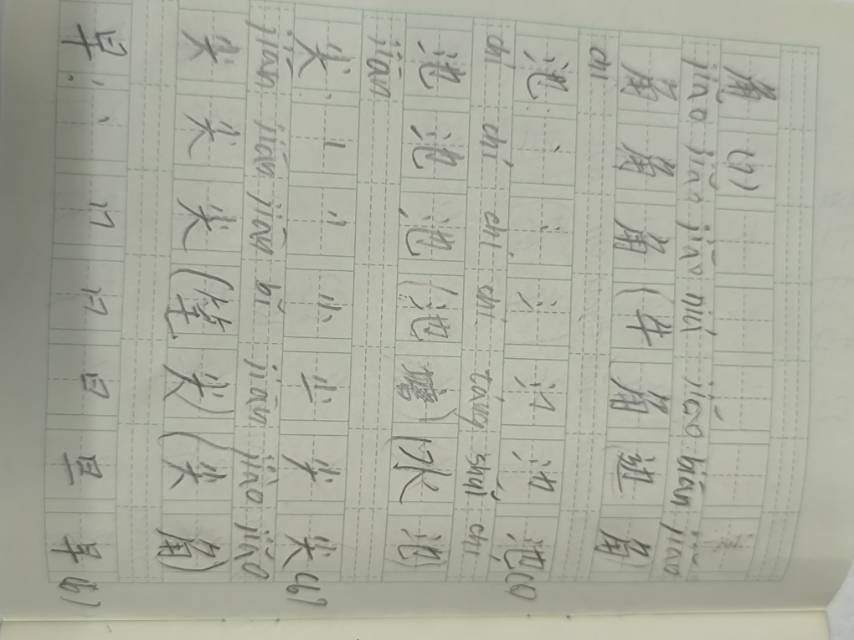 角 (7)
jiǎo jiǎo jiǎo niú jiǎo biān jiǎo
角 角 角 (牛 角 角)
chí
池: 丶 氵 池 (6)
chí chí chí chí táng shuǐ chí
池 池 池 (池 塘) (水 池)
jiān
尖: 小 尖 (6)
jiān jiān jiān bǐ jiān jiān jiǎo
尖 尖 尖 (笔 尖) (尖 角)
早: 丨 冂 日 日 旦 早 (6)